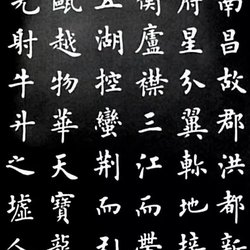 南昌故郡洪都新
府星分翼軫地接
衡廬襟三江而帶
五湖控蠻荊而引
甌越物華天寶龍
光射牛斗之墟人